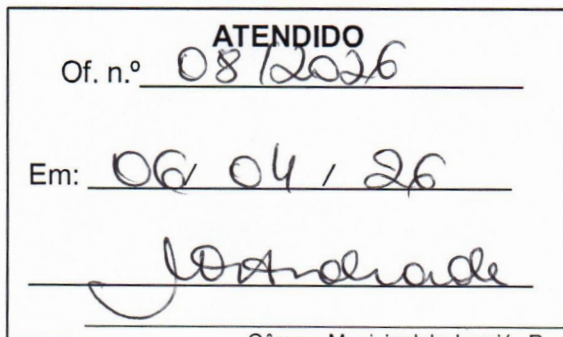 ATENDIDO
Of. n.º 08/2026
Em: 06/04/26
Andrade